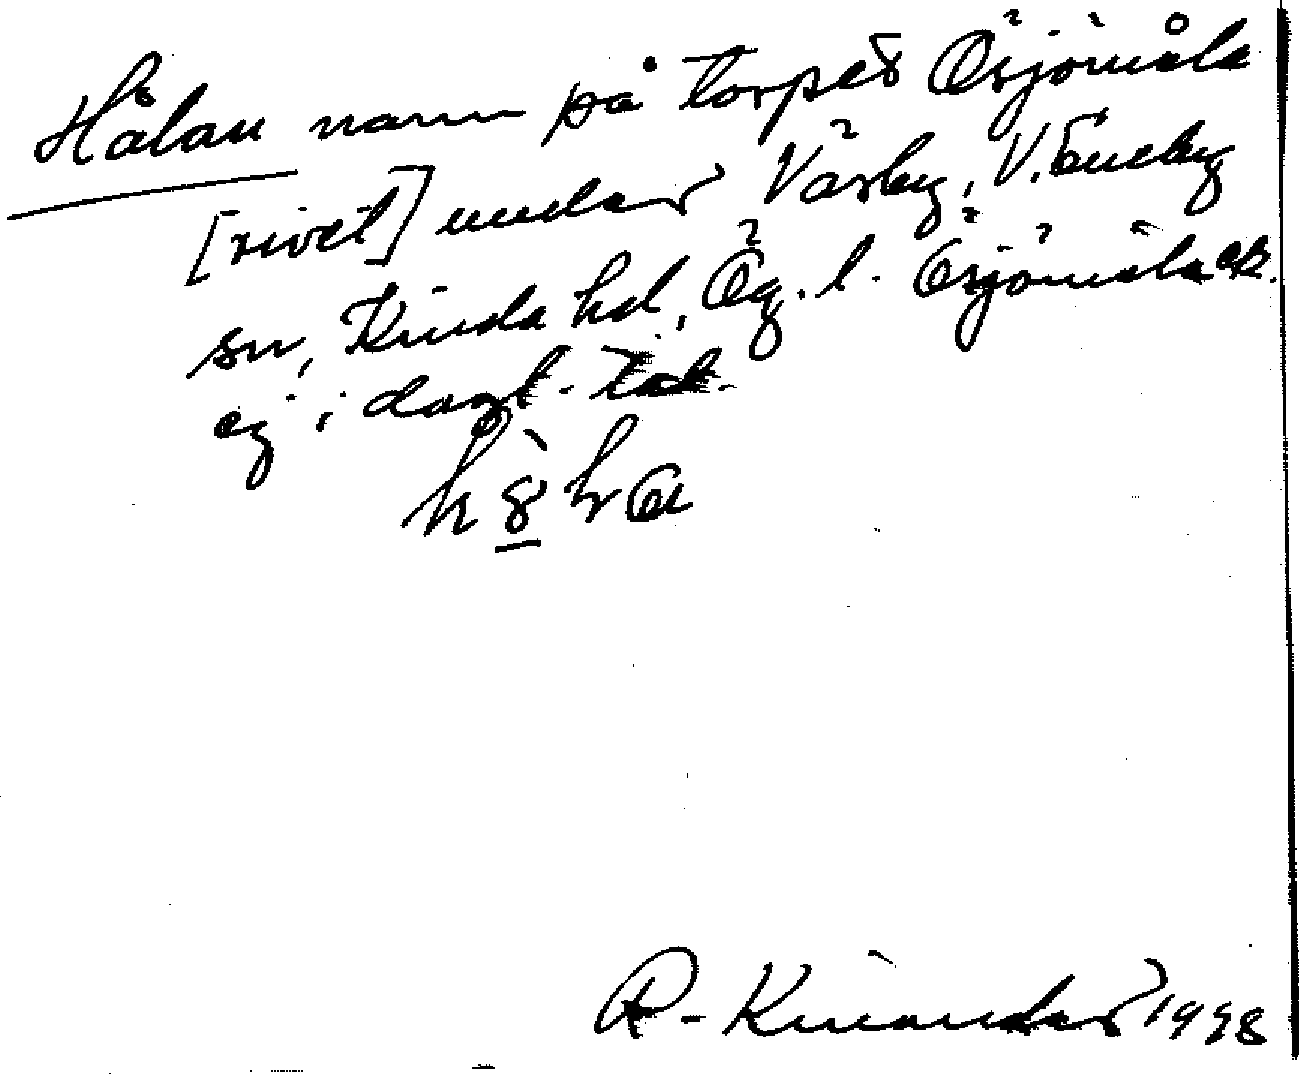 Hålan namn på torpet Ösjömåla
[rivet] under Väsby, V. Eneby
sn, Kinda hd, Ög. l. Ösjömåla ek.
ej i dagl. tal.
R. Kinander 1998